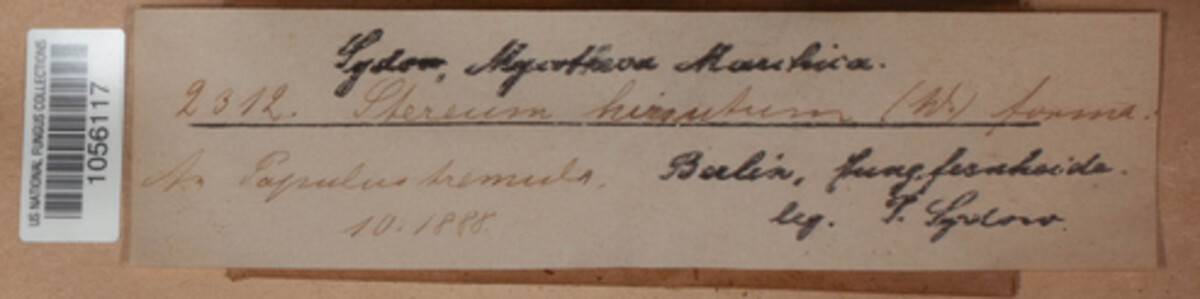 US NATIONAL FUNGUS COLLECTIONS
1056117
Sydow, Mycotheca Marchica.
2312. Stereum hirsutum (W.) forma.
An Populus tremula. Berlin, Jungfernheide.
10.1888. leg. P. Sydow.